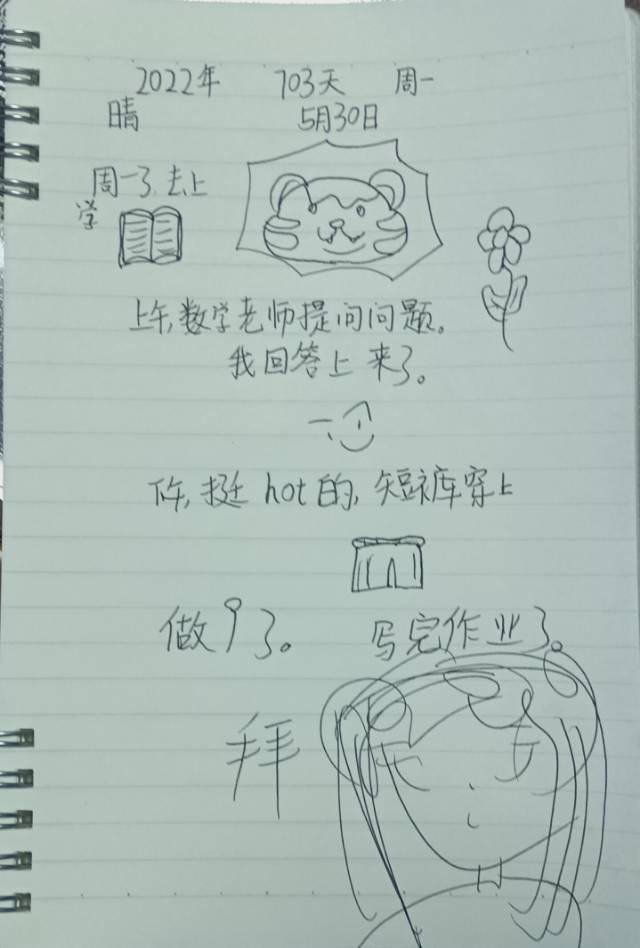 2022年 703天 周一
晴 5月30日
周一了,去上
学
上午,数学老师提问问题。
我回答上来了。
下午,挺 hot 的,短裤穿上
做 了。 写完作业了。
拜